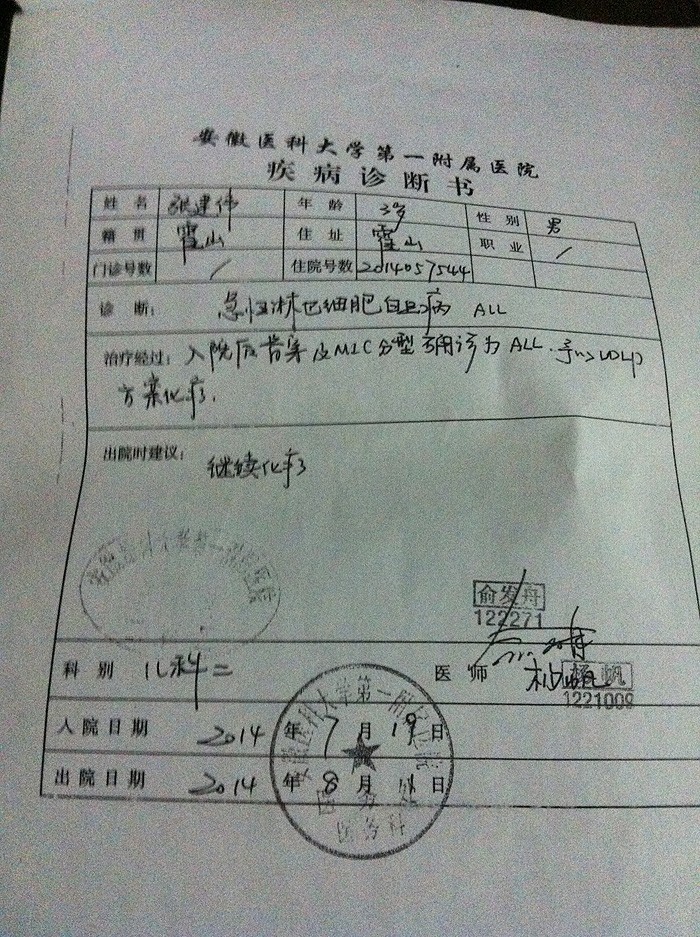 安徽医科大学第一附属医院
疾病诊断书
姓名 张建伟 年龄 3岁 性别 男
籍贯 霍山 住址 霍山 职业 /
门诊号数 / 住院号数 2014057544
诊断: 急性淋巴细胞白血病 ALL
治疗经过: 入院后骨穿及MIC分型确诊为ALL.予以VDLP
方案化疗.
出院时建议: 继续化疗
安徽医科大学第一附属医院
俞发舟
122271
科别 儿科二 医师 杨帆
1221009
入院日期 2014年7月19日
出院日期 2014年8月 日
安徽医科大学第一附属医院
医务处
医务科